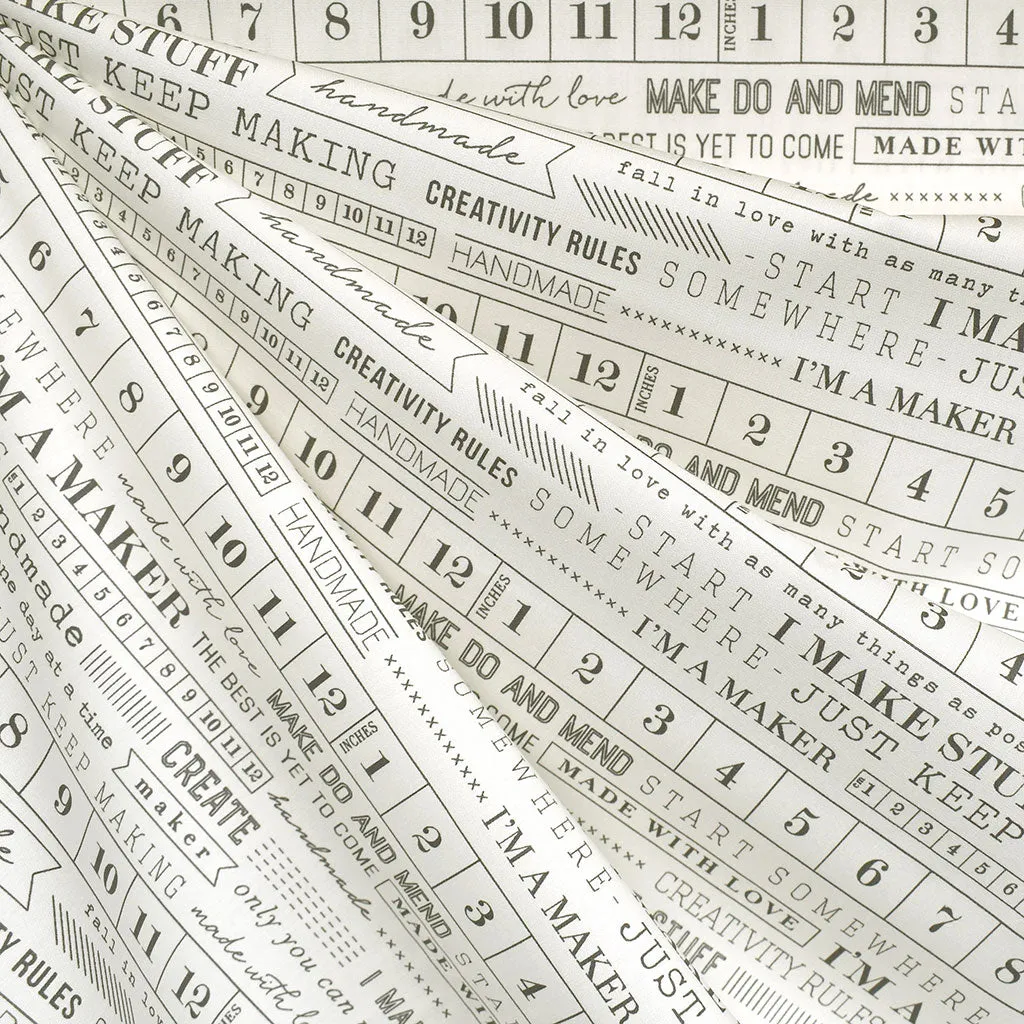 6 7 8 9 10 11 12 INCHES 1 2 3 4
de with love MAKE DO AND MEND STA
BEST IS YET TO COME MADE WIT
made xxxxxxxx
MAKE STUFF handmade fall in love with as many th
JUST KEEP MAKING CREATIVITY RULES -START I MA
5 6 7 8 9 10 11 12 HANDMADE SOMEWHERE- JUS
xxxxxxxxxxxxxxx I'M A MAKER
10 11 12 INCHES 1 2 3 4 5
DO AND MEND START SO
2
TH LOVE
2 3 4
STUFF handmade fall in love with as many things as pos
UST KEEP MAKING CREATIVITY RULES -START I MAKE STU
2 3 4 5 6 7 8 9 10 11 12 HANDMADE SOMEWHERE- JUST KEEP
xxxxxxxxxxxxxxx I'M A MAKER 1 2 3 4 5 6
9 10 11 12 INCHES 1 2 3 4 5 6 7 8
MAKE DO AND MEND START SOMEWHERE
COME MADE WITH LOVE I'M A
xxxxxxx CREATIVITY RULES
STUFF
4 5 6 7 8 9 10 11 12 HANDMADE SOMEWHERE- JUST
xxxxxxxxxxxxxxx I'M A MAKER
6 7 8 9 10 11 12 INCHES 1 2 3 4
EWHERE made with love MAKE DO AND MEND STA
I'M A MAKER THE BEST IS YET TO COME MADE W
1 2 3 4 5 6 7 8 9 10 11 12 handmade xxxxxxxx
handmade CREATE I MA
one day at a time maker only you can
JUST KEEP MAKING made with l
8 9 10 11 12
fall in lo
TY RULES